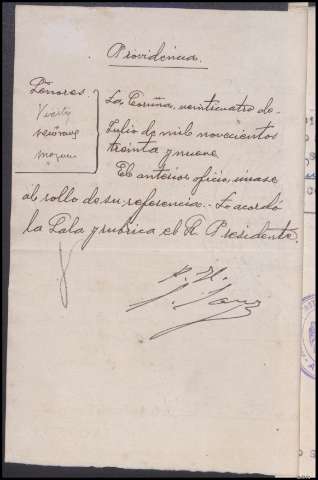 Providencia.
Señores.
La Coruña, veinticuatro de
Julio de mil novecientos
treinta y nueve
El anterior oficio, únase
al rollo de su referencia.- Lo acordó
la Sala y rubrica el Sr Presidente.